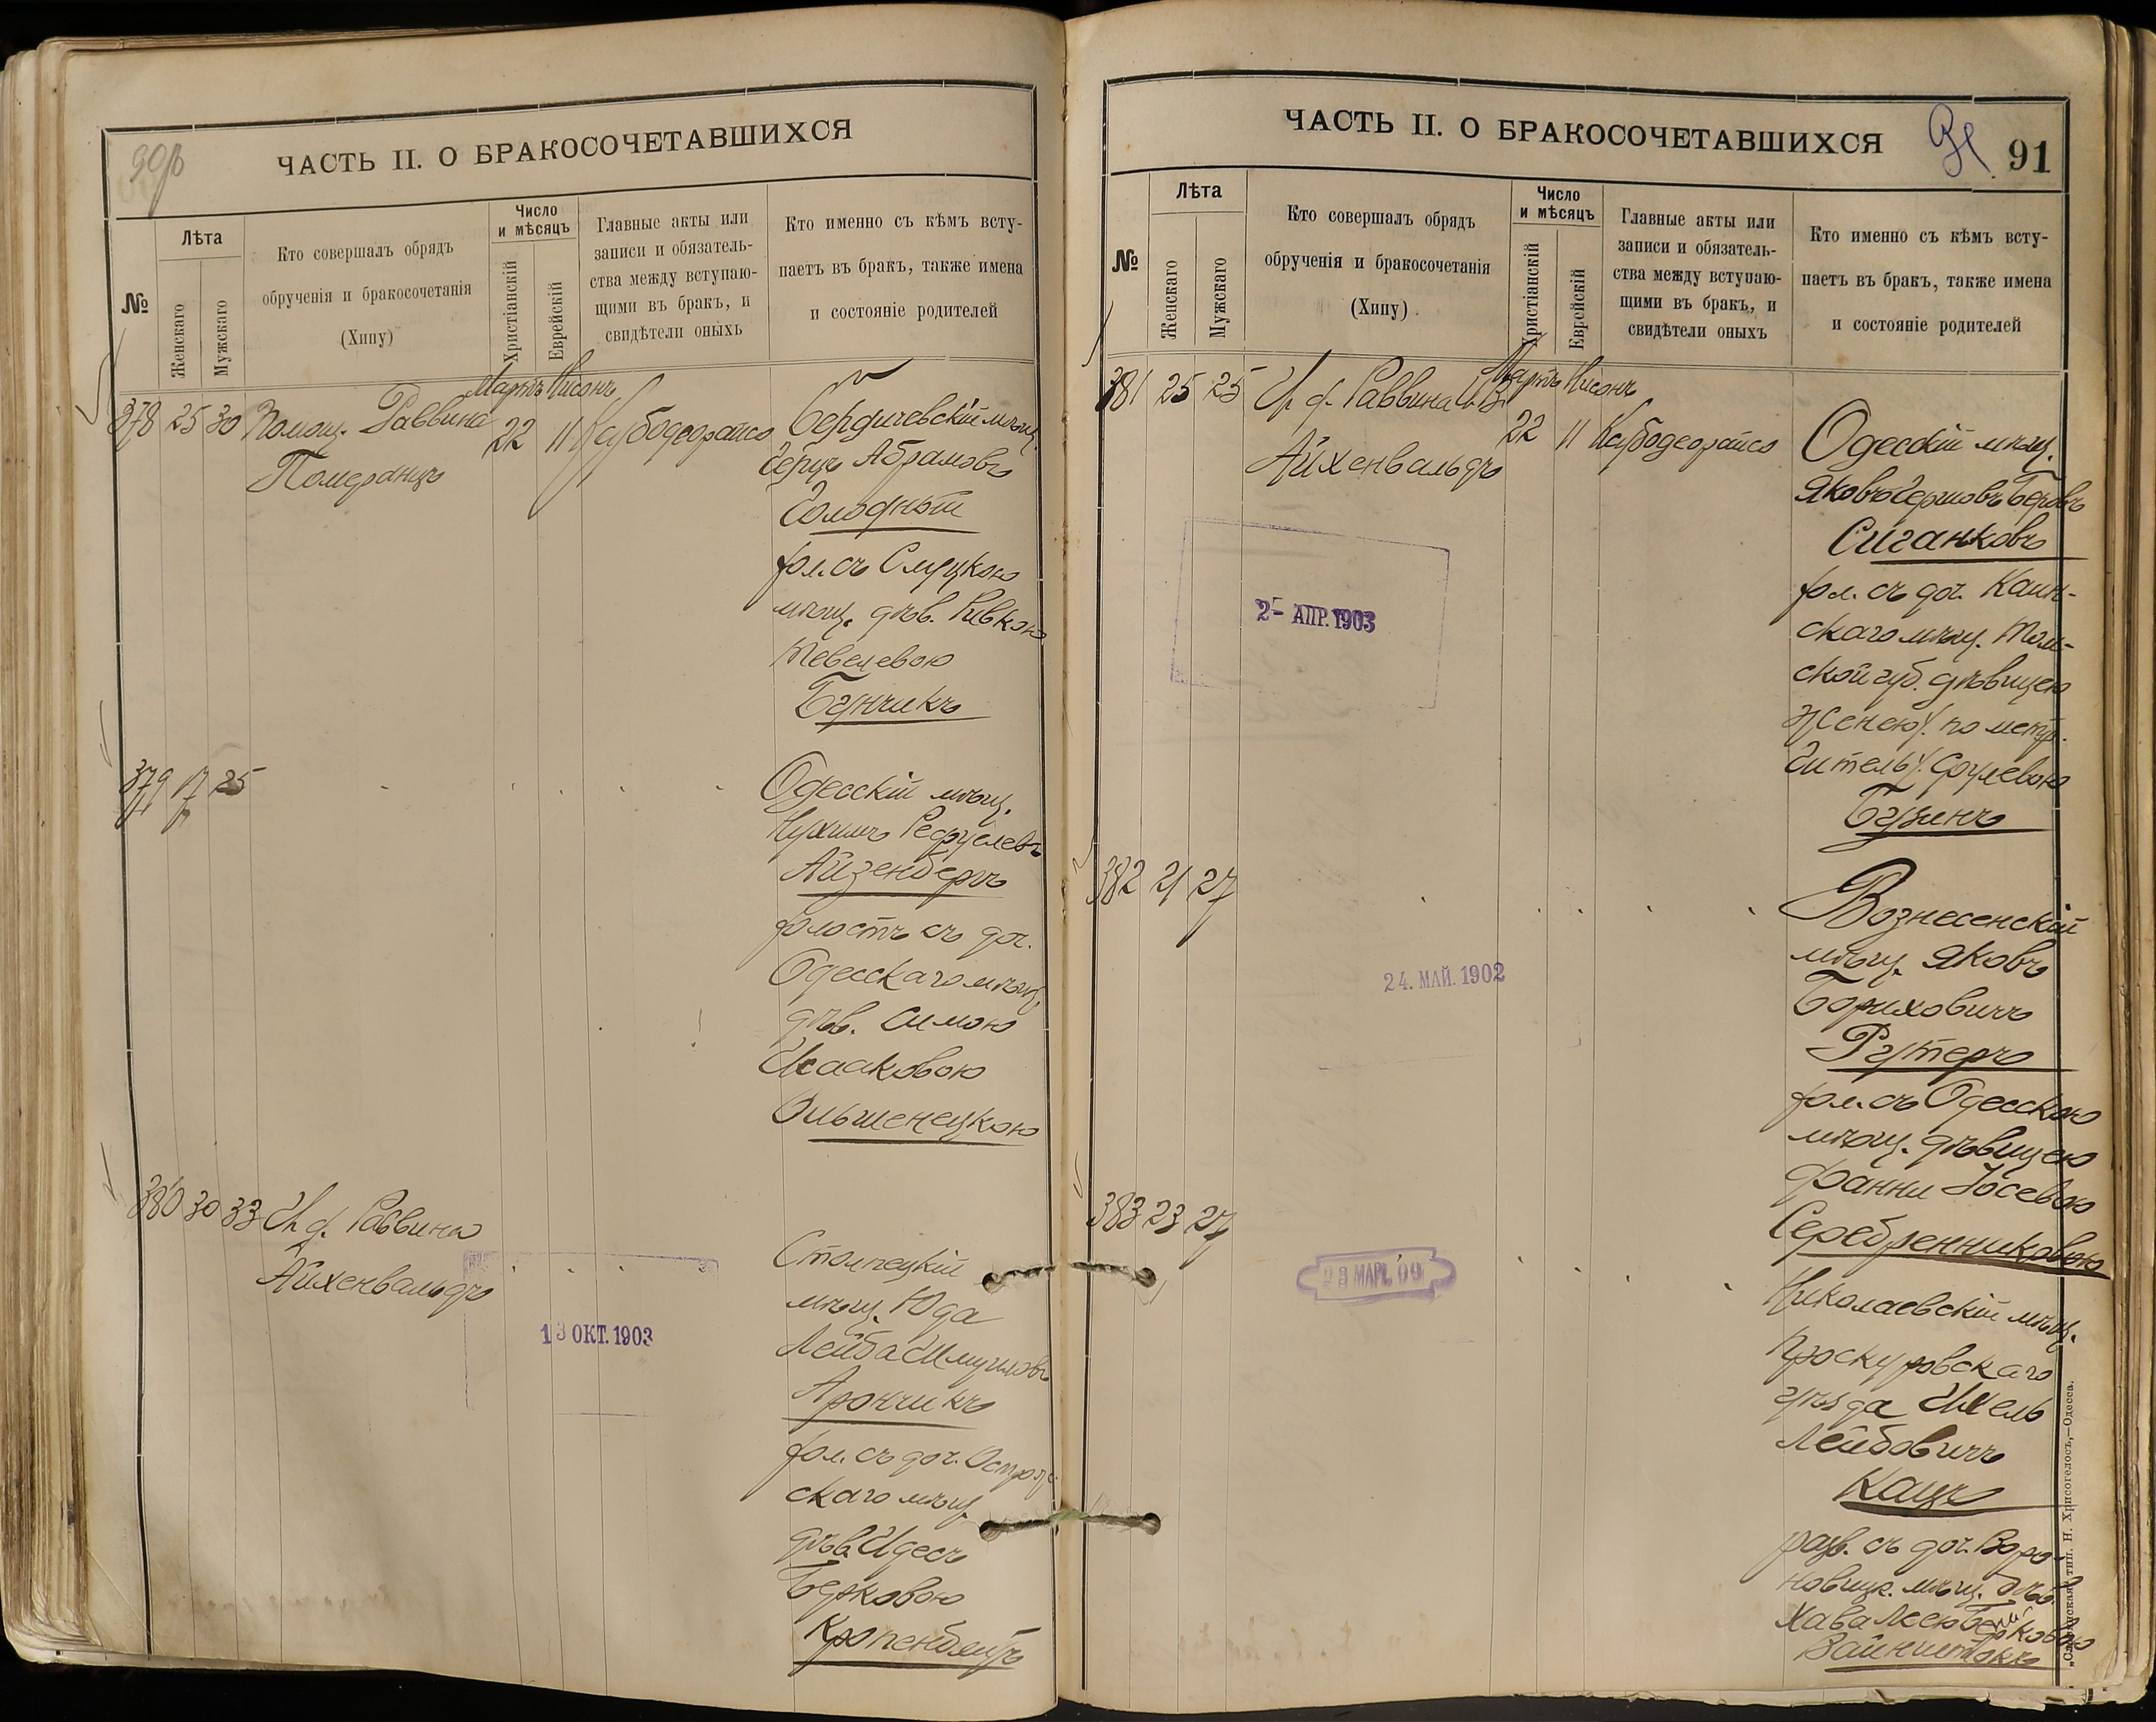 90об
ЧАСТЬ II. О БРАКОСОЧЕТАВШИХСЯ
№
Лѣта
Женскаго
Мужскаго
Кто совершалъ обрядъ
обрученія и бракосочетанія
(Хипу)
Число
и мѣсяцъ
Христіанскій
Еврейскій
Главные акты или
записи и обязатель-
ства между вступаю-
щими въ бракъ, и
свидѣтели оныхъ
Кто именно съ кѣмъ всту-
паетъ въ бракъ, также имена
и состояніе родителей
Мартъ Нисонъ
378 25 30 Помощ. Раввина 22 11 Ксубодеорайсо
Померанцъ
Бердичевскій мѣщ.
Герцъ Абрамовъ
Голодный
хол. съ Слуцкою
мѣщ. дѣв. Ривкою
Тевелевою
Бунчикъ
379 17 25
Одесскій мѣщ.
Нухимъ Рефулевъ
Айзенбергъ
холостъ съ доч.
Одесскаго мѣщ.
дѣв. Симою
Исааковою
Ольшенецкою
380 30 33 И. д. Раввина
Айхенвальдъ
13 ОКТ. 1903
Столпецкій
мѣщ. Юда
Лейба Шмуиловъ
Арончикъ
хол. съ доч. Острож-
скаго мѣщ.
дѣв. Идесъ
Берковою
Кропенбейтъ
ЧАСТЬ II. О БРАКОСОЧЕТАВШИХСЯ
91
91
№
Лѣта
Женскаго
Мужскаго
Кто совершалъ обрядъ
обрученія и бракосочетанія
(Хипу)
Число
и мѣсяцъ
Христіанскій
Еврейскій
Главные акты или
записи и обязатель-
ства между вступаю-
щими въ бракъ, и
свидѣтели оныхъ
Кто именно съ кѣмъ всту-
паетъ въ бракъ, также имена
и состояніе родителей
Мартъ Нисонъ
381 25 25 И. д. Раввина
Айхенвальдъ
22 11 Ксубодеорайсо
2- АПР. 1903
Одесскій мѣщ.
Яковъ Гершовъ Беровъ
Сиганковъ
хол. съ доч. Каин-
скаго мѣщ. Том-
ской губ. дѣвицею
Женею /по метр.
Гитель/ Срулевою
Бузинъ
382 21 27
24. МАЙ. 1902
Вознесенскій
мѣщ. Яковъ
Бориховичъ
Рутеръ
хол. съ Одесскою
мѣщ. дѣвицею
Фанни Іосевою
Серебренниковою
383 23 27
28 МАРТ. 09
Николаевскій мѣщ.
Проскуровскаго
уѣзда
Лейбовичъ
Кацъ
разв. съ доч. Воро-
новицк. мѣщ. дѣв.
Хава Лея Берковою
Вайнштокъ
„Славянская“ тип. Н. Хрисогелосъ,—Одесса.